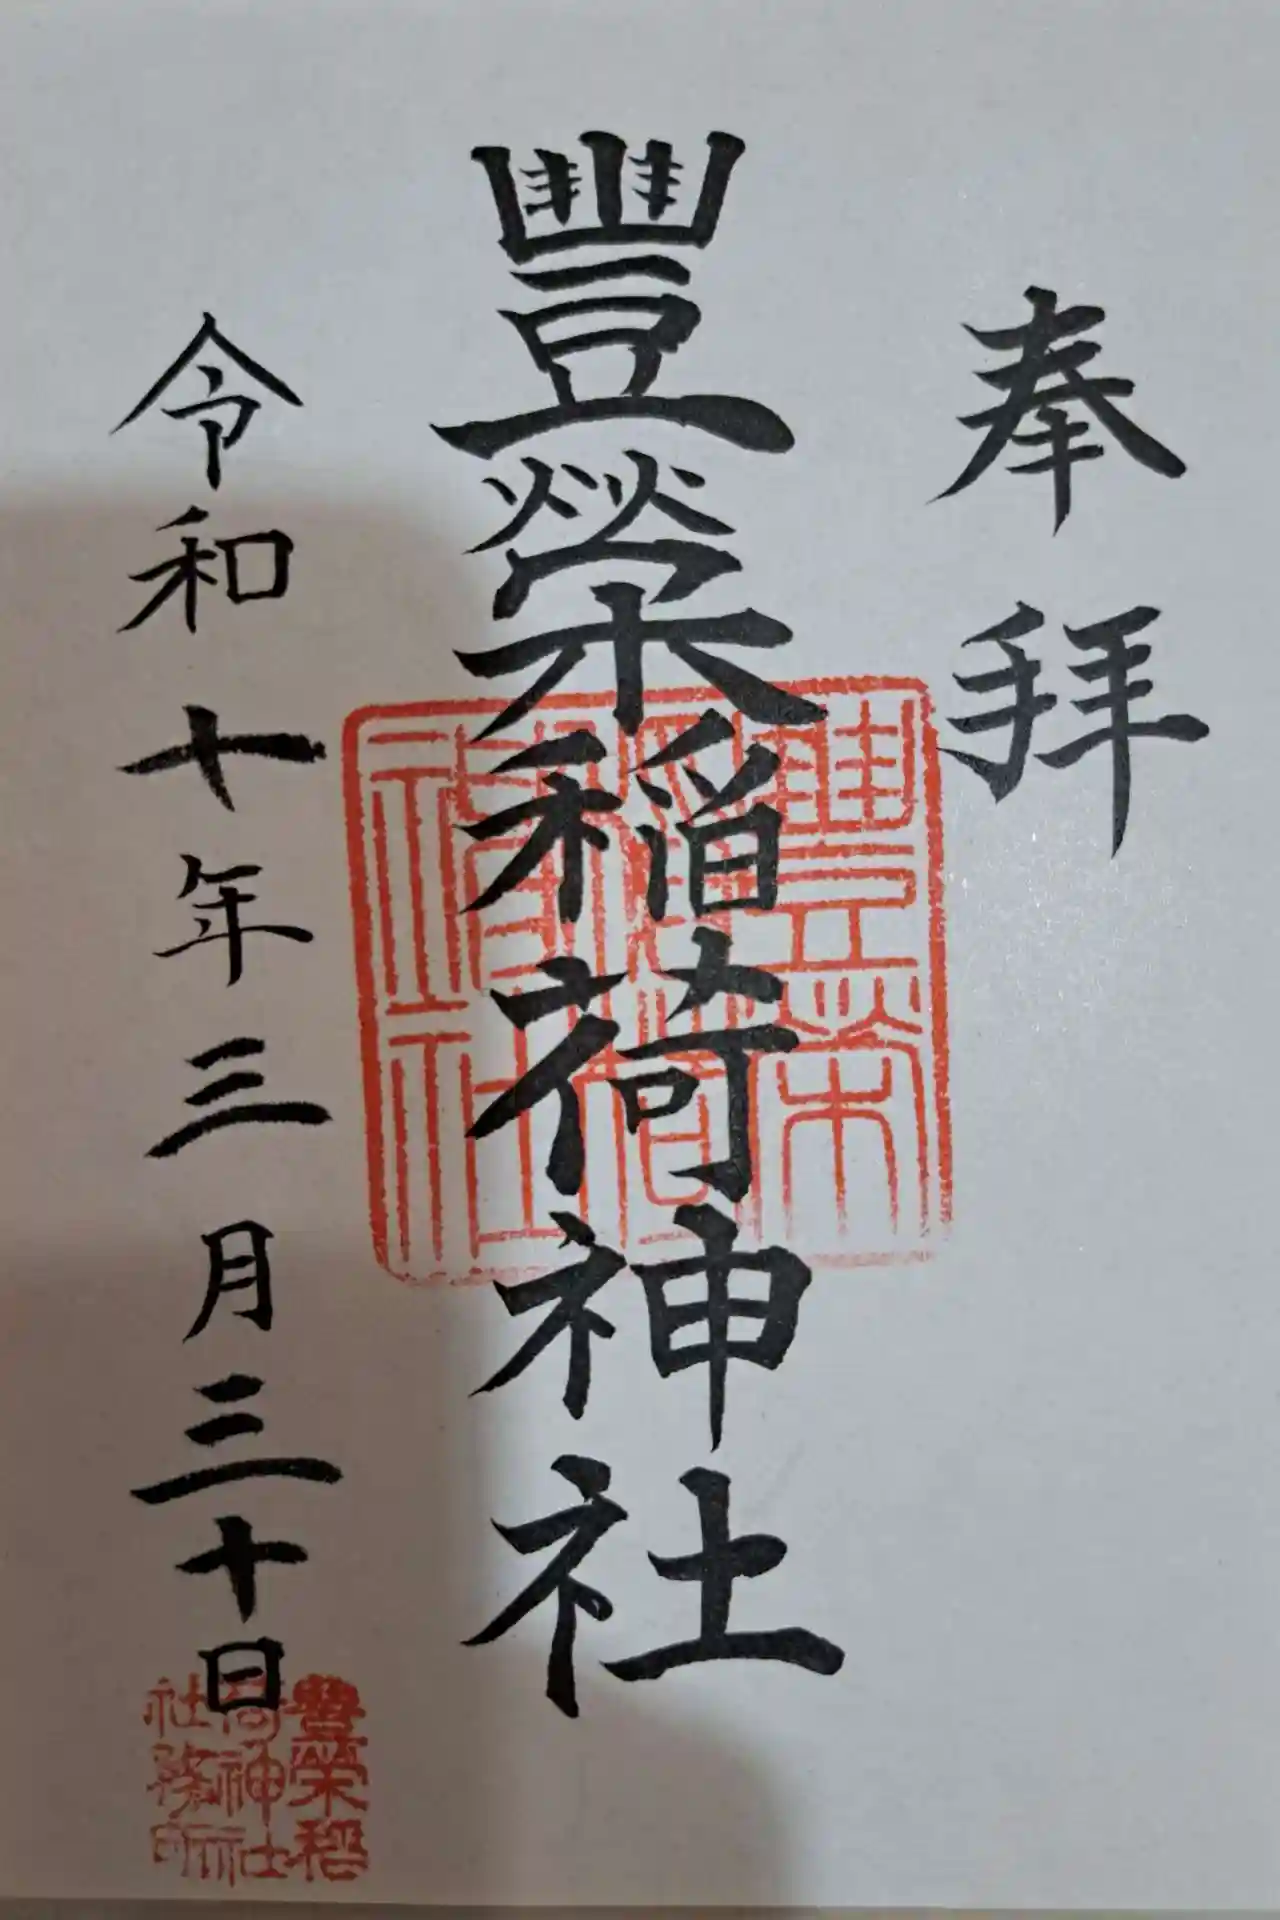 奉拝
豐榮稲荷神社
令和十年三月三十日
豊榮
稲荷
神社
豐榮稲
荷神社
社務所